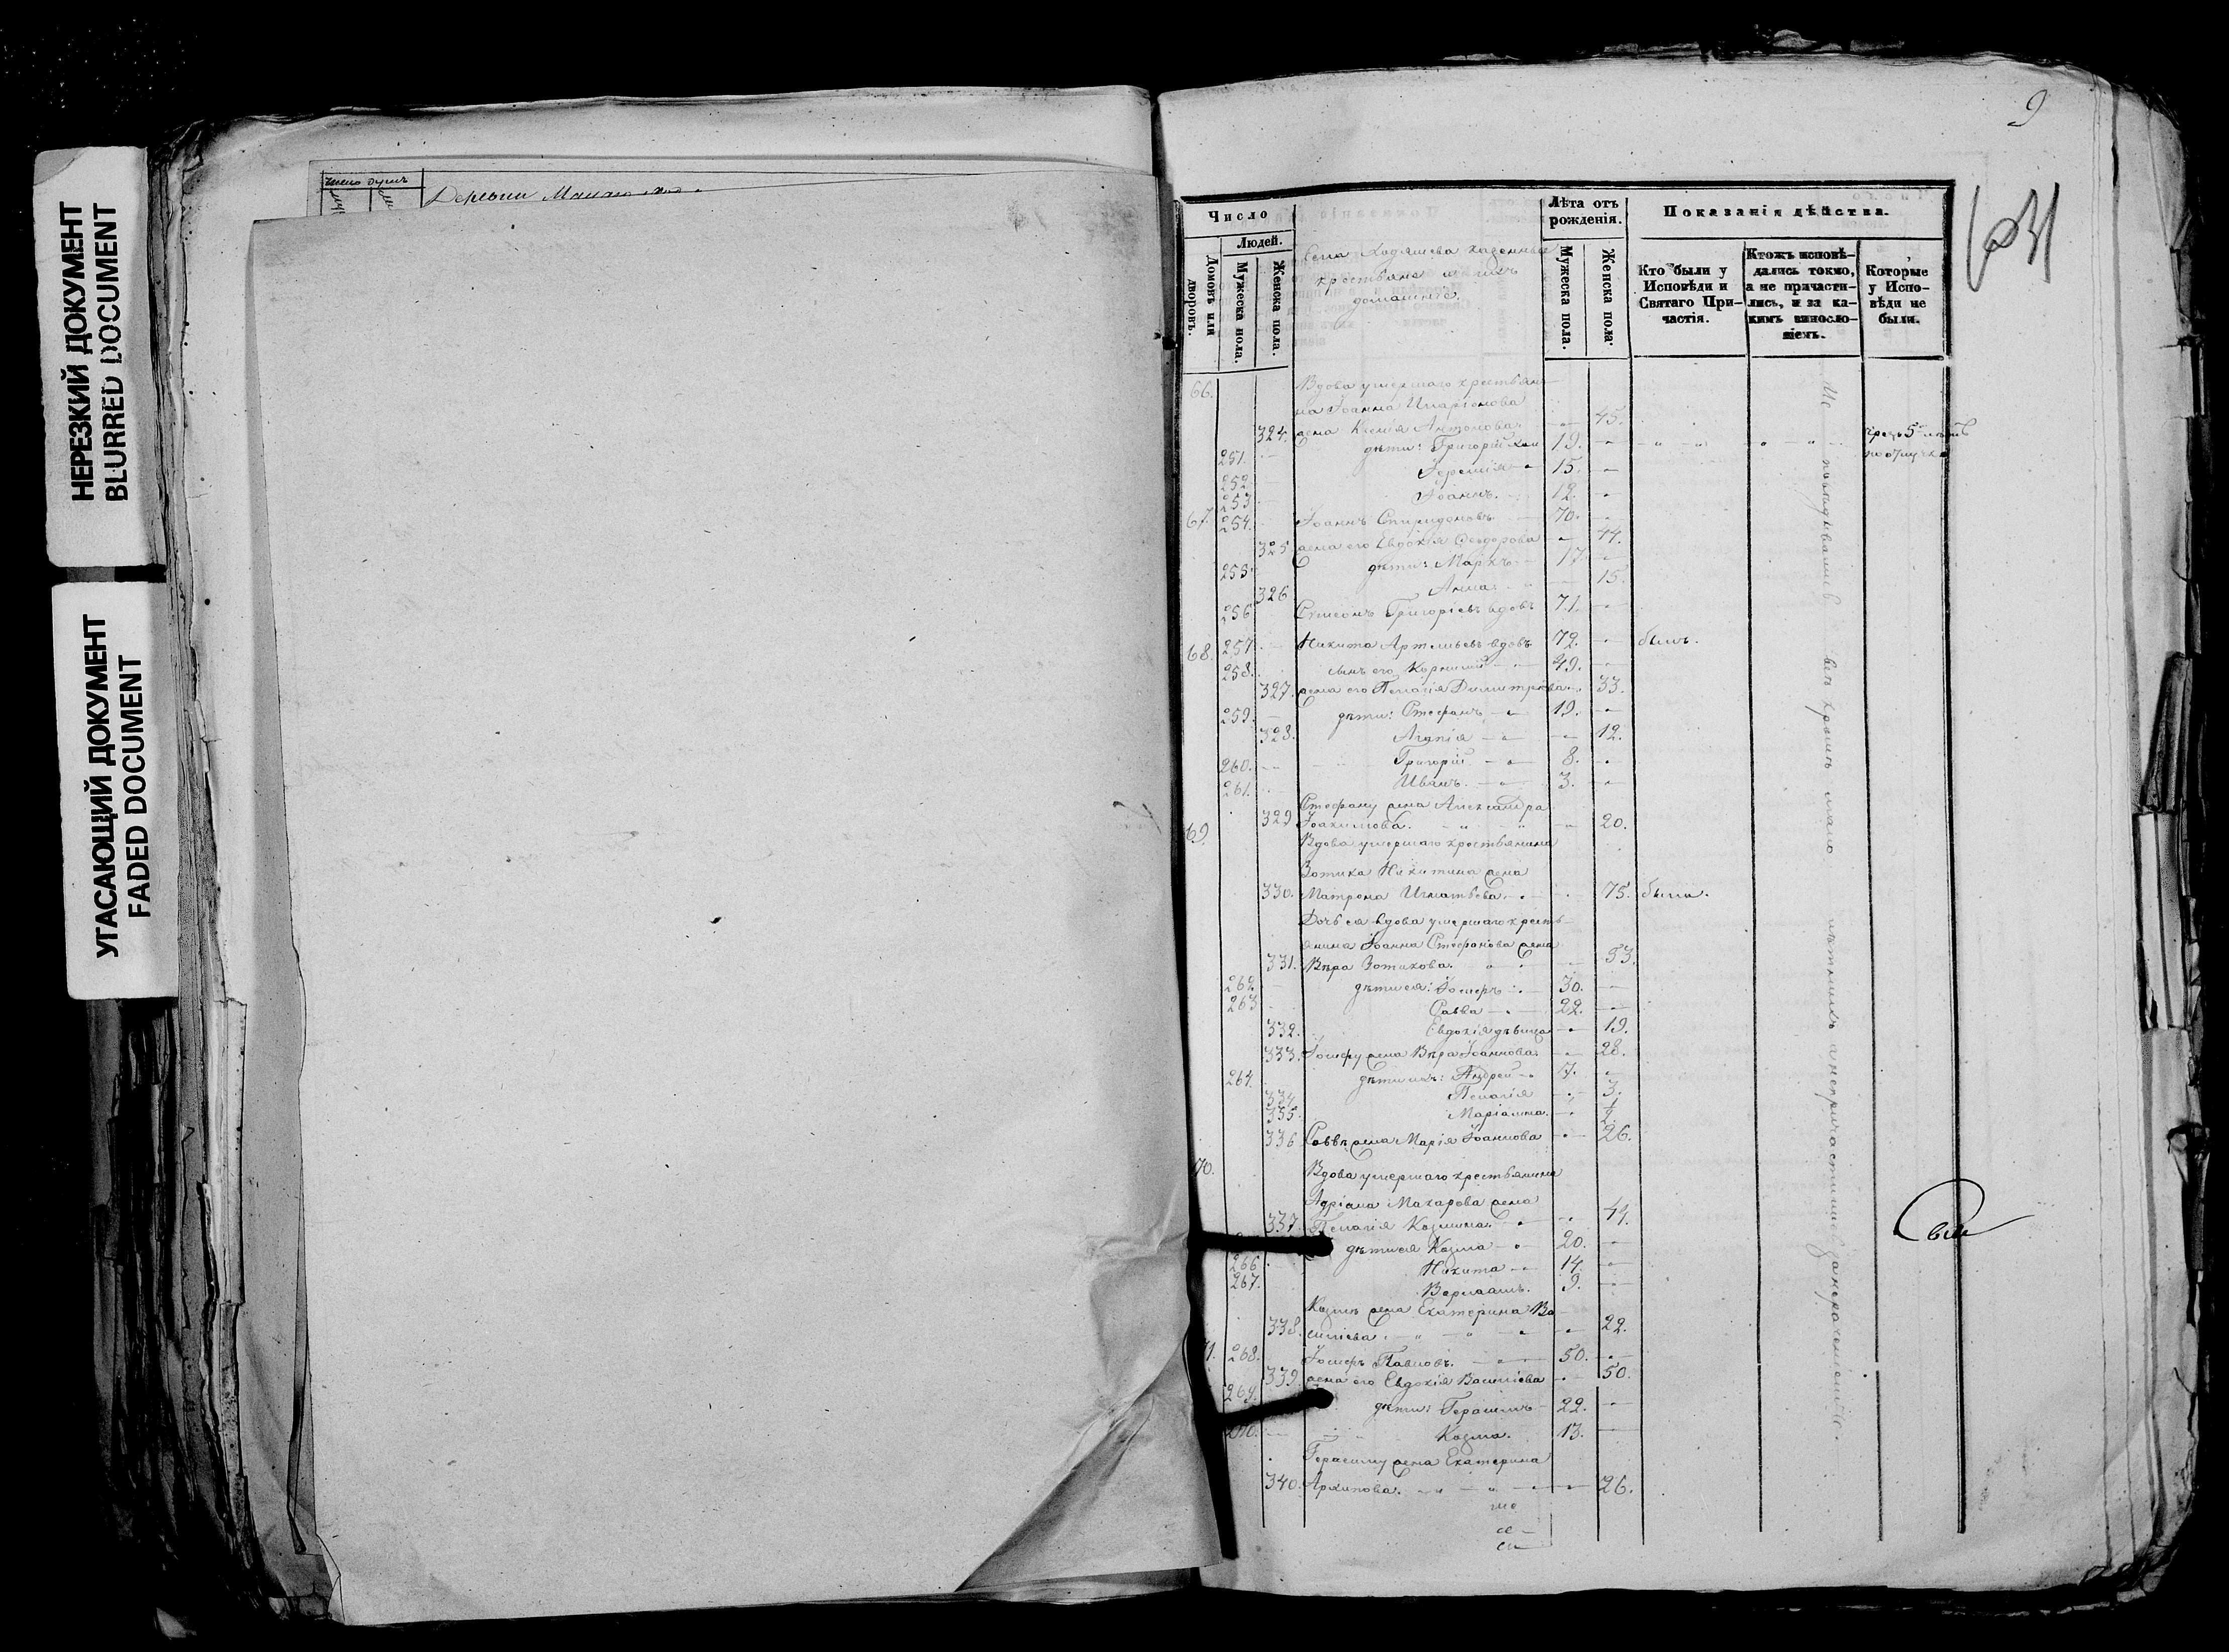 НЕРЕЗКИЙ ДОКУМЕНТ
BLURRED DOCUMENT
УГАСАЮЩИЙ ДОКУМЕНТ
FADED DOCUMENT
Число душъ
Деревни
9
631
Число
Людей.
Домовъ или дворовъ.
Мужеска пола.
Женска пола.
Села Ходяшева казенные
крестьяне и ихъ
домашніе.
Лѣта отъ рожденія.
Мужеска пола.
Женска пола.
Показанія дѣйства.
Кто были у Исповѣди и Святаго Причастія.
Ктожъ исповѣдались токмо, а не причастились, и за какимъ винословіемъ.
Которые у Исповѣди не были.
66. Вдова умершаго крестьяни-
на Іоанна Иларіонова
324. жена Ксенія Антонова. 45.
251. дѣти: Григорій 19. чрезъ 5 лѣтъ
по отлучкѣ
252 Іеремія 15.
253 Іоаннъ. 12.
67 254. Іоаннъ Спиридоновъ. 70.
325 жена его Евдокія Ѳеодорова 44.
255. дѣти: Маркъ 17
326 Анна 15.
256 Симеонъ Григорьевъ вдовъ 71.
68. 257. Никита Артемьевъ вдовъ 72. былъ.
258. сынъ его Корнилій 49.
327. жена его Пелагія Димитріева 33.
259. дѣти: Стефанъ 19.
328. Агапія 12.
260. Григорій 8.
261. Иванъ. 3.
Стефану жена Александра
329 Іоакимова. 20.
69. Вдова умершаго крестьянина
Зотика Никитина жена
330. Матрона Игнатьева. 75. была.
Дочь ея вдова умершаго кресть-
янина Іоанна Стефанова жена
331. Вѣра Зотикова. 53.
262 дѣти ея: Іосифъ 30.
263 Савва 22.
332. Евдокія дѣвица 19.
333. Іосифу жена Вѣра Іоаннова. 28.
264. дѣти ихъ: Андрей 7.
334. Пелагія 3.
335. Маріамна.
336 Саввѣ жена Марія Іоаннова 26.
70. Вдова умершаго крестьянина
Адріана Макарова жена
337. Пелагія Козмина. 44.
дѣти ея Козма 20.
266 Никита 14
267. Варлаамъ. 9.
Козмѣ жена Екатерина Ва-
338. силіева. 22.
71. 268. Іосифъ Павловъ. 50.
339. жена его Евдокія Василіева 50.
269. дѣти: Герасимъ 22.
270. Козма. 13.
Герасиму жена Екатерина
340. Архипова. 26.
всѣ кромѣ мало лѣтнихъ